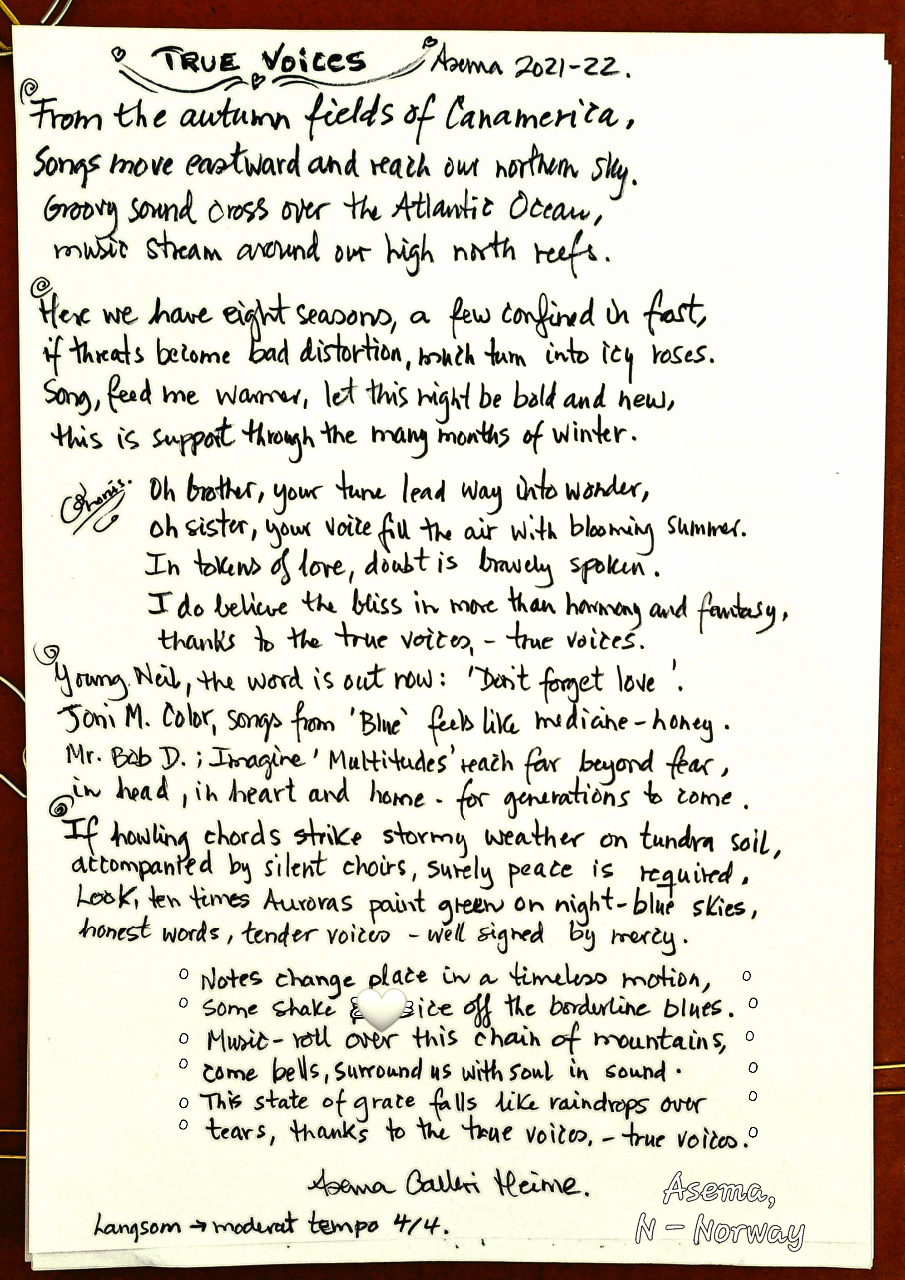 TRUE VOICES Asema 2021-22.
From the autumn fields of Canamerica,
Songs move eastward and reach our northern sky.
Groovy sound cross over the Atlantic Ocean,
music stream around our high north reefs.
Here we have eight seasons, a few confined in frost,
if threats become bad distortion, much turn into icy roses.
Song, feed me warmer, let this night be bold and new,
this is support through the many months of winter.
Oh brother, your tune lead way into wonder,
oh sister, your voice fill the air with blooming summer.
In tokens of love, doubt is bravely spoken.
I do believe the bliss in more than harmony and fantasy,
thanks to the true voices, - true voices.
Young Neil, the word is out now: 'Don't forget love'.
Joni M. Color, songs from 'Blue' feels like medicine-honey.
Mr. Bob D.; Imagine 'Multitudes' reach far beyond fear,
in head, in heart and home - for generations to come.
If howling chords strike stormy weather on tundra soil,
accompanied by silent choirs, surely peace is required.
Look, ten times Auroras paint green on night-blue skies,
honest words, tender voices - well signed by mercy.
Notes change place in a timeless motion,
some shake ice off the borderline blues.
Music-roll over this chain of mountains,
come bells, surround us with soul in sound.
This state of grace falls like raindrops over
tears, thanks to the true voices, - true voices.
Asema
Langsom → moderat tempo 4/4.
Asema,
N - Norway